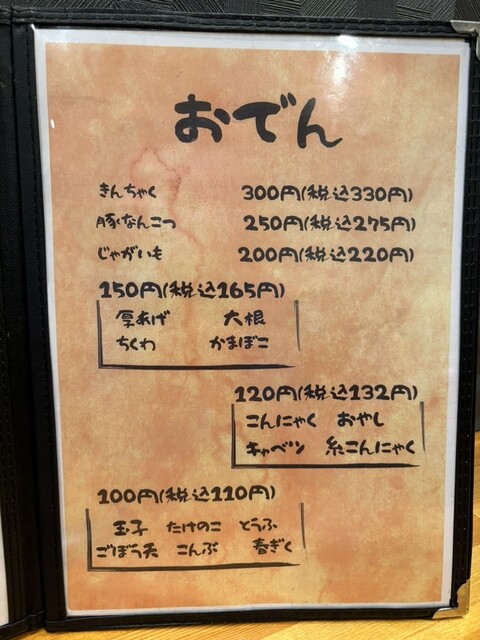 おでん
きんちゃく 300円(税込330円)
豚なんこつ 250円(税込275円)
じゃがいも 200円(税込220円)
150円(税込165円)
厚あげ 大根
ちくわ かまぼこ
120円(税込132円)
こんにゃく おやし
キャベツ 糸こんにゃく
100円(税込110円)
玉子 たけのこ とうふ
ごぼう天 こんぶ 春ぎく